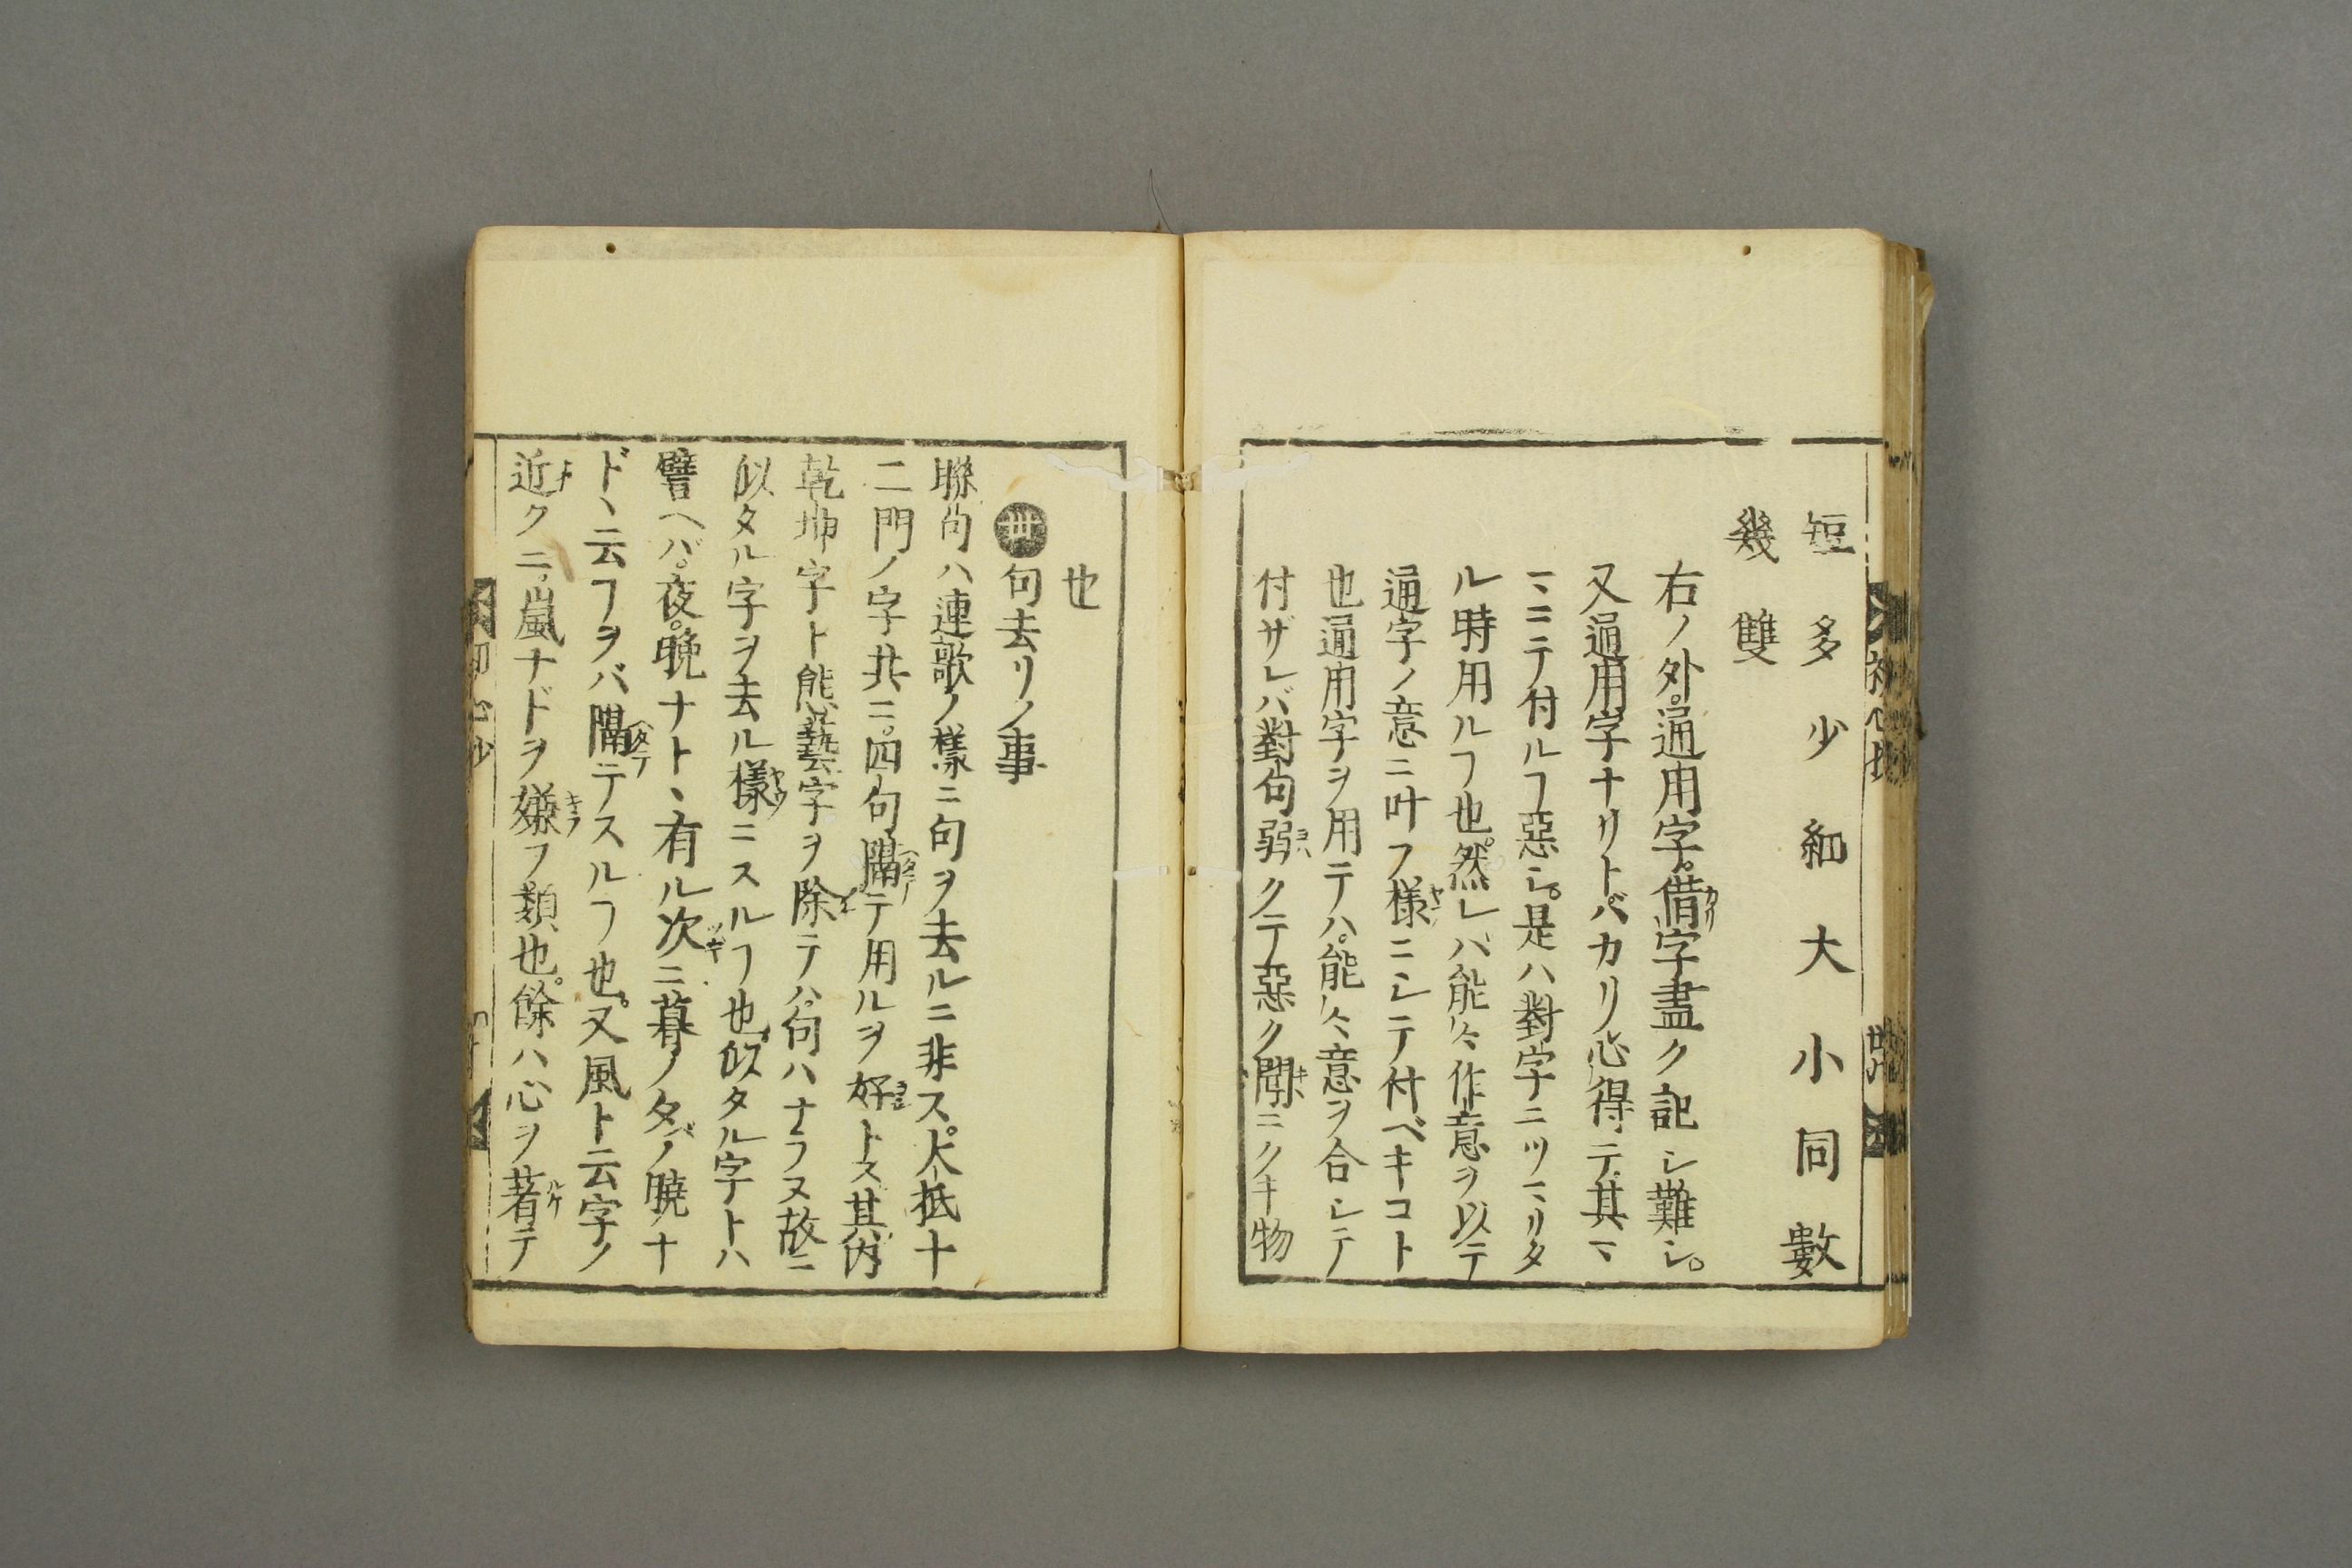 短多少細大小同數
幾雙
右ノ外。通用字。借字盡ク記シ難シ。
又通用字ナリトバカリ心得テ。其マ
マニテ付ルヿ惡シ。是ハ對字ニツマリタ
ル時用ルヿ也。然レバ能々作意ヲ以テ
通字ノ意ニ叶フ樣ニシテ付ベキコト
也通用字ヲ用テハ。能々意ヲ合シテ
付ザレバ對句弱クテ惡ク聞ニクキ物
也
丗句去リノ事
聯句ハ連歌ノ樣ニ句ヲ去ルニ非ス。大抵十
二門ノ字共ニ。四句隔テ用ルヲ好トス其内
乾坤字ト態藝字ヲ除テハ。句ハナラヌ故ニ
似タル字ヲ去ル樣ニスルヿ也。似タル字トハ
譬ヘバ。夜。晩ナトヽ有ル次ニ暮ノ夕ノ曉ナ
ドヽ云フヲバ隔テスルヿ也。又風ト云字ノ
近クニ。嵐ナドヲ嫌フ類也。餘ハ心ヲ著テ